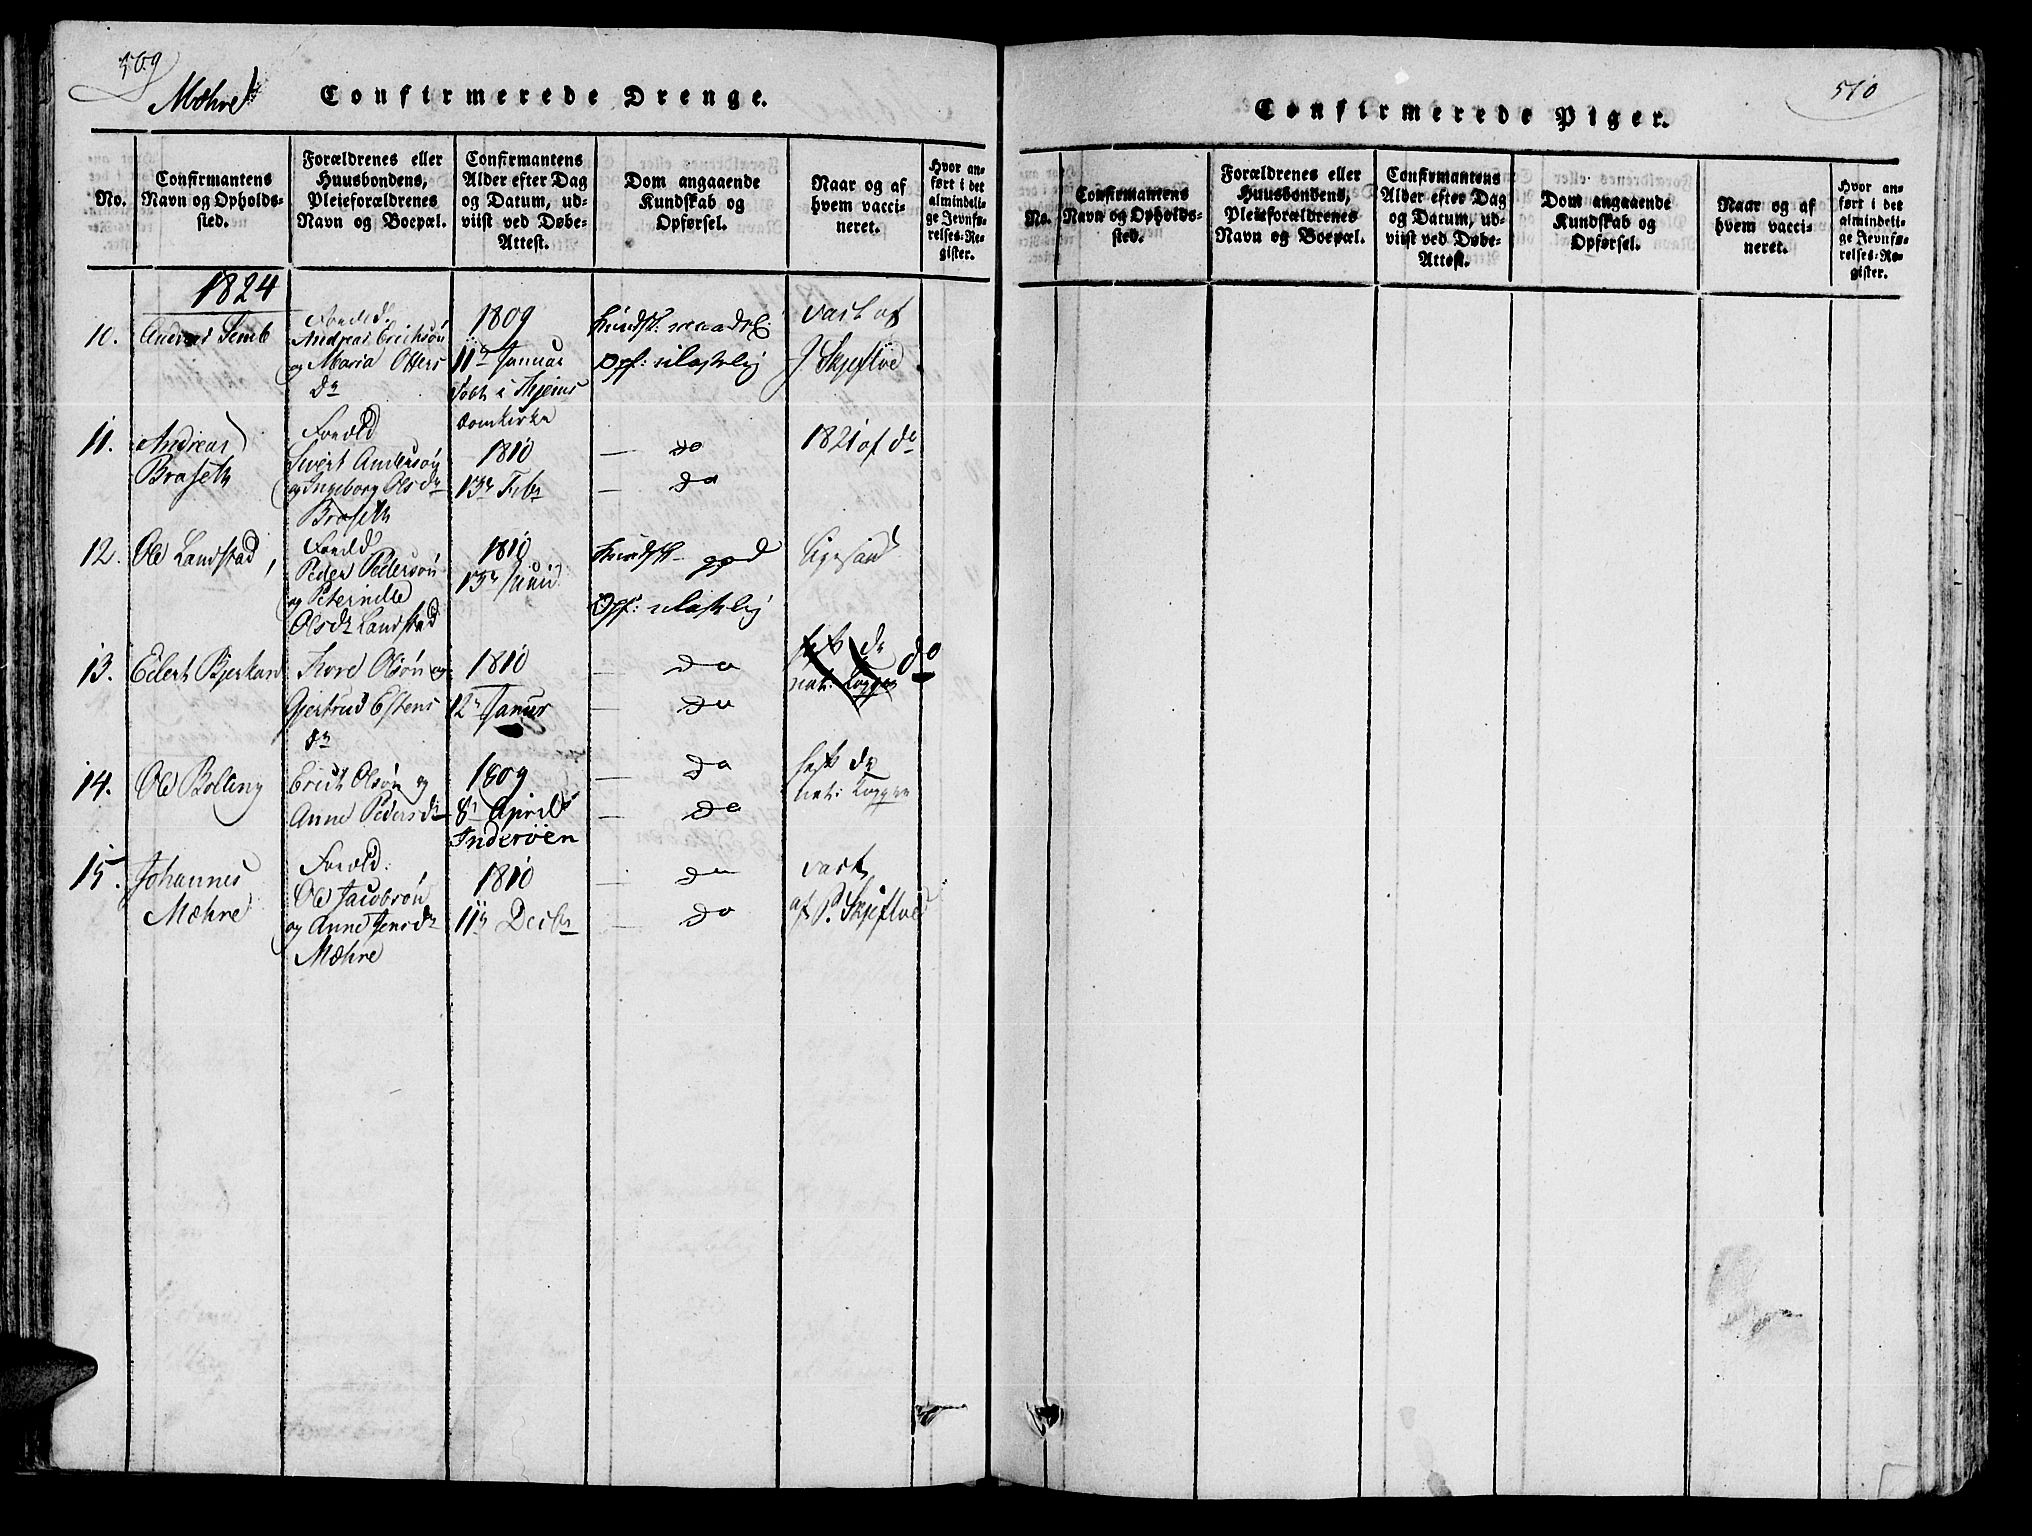 509
Mæhre
Confirmerede Drenge.
No.
Confirmantens
Navn og Opholds-
sted.
Forældrenes eller
Huusbondens,
Pleieforældrenes
Navn og Boepæl.
Confirmantens
Alder efter Dag
og Datum, ud-
viist ved Døbe-
Attest.
Dom angaaende
Kundskab og
Opførsel.
Naar og af
hvem vacci-
neret.
Hvor an-
ført i det
almindeli-
ge Jevnfø-
relses-Re-
gister.
1824
10.
Semb
Andreas Erichsøn
og Maria Otters
Dr
1809
11te Januar
døbt i Thjems
Domkirke
Opf: ulastelig
vast af
J Skjefloe
11.
Andreas
Braseth
Foræld
Sivert Andersøn
og Ingeborg Olsdr
Braseth
1810
13n Febr
— do
— do
1821 af do
12.
Ole Landstad,
Foræld
Peder Pedersøn
og Peternille
Olsdr Landstad
1810
13n Junii
Kundsk god
Opf: ulastelig
Ligesaa
13.
Edert Bjerkan
Tore Olsøn og
Gjertrud Estens
dr
1810
12n Januar
— do
— do
do
14.
Ole Bolling
Erich Olsøn og
Anne Pedersdr
1809
8n April
Inderøen
— do
— do
nat: Kopper
15.
Johannes
Mæhre
Foræld:
Ole Jacobsøn
og Anne Jensdr
Mæhre
1810
11n Decbr
— do
— do
vast
af P. Skjefloe
510
Confirmerede Piger.
No.
Confirmantens
Navn og Opholds-
sted.
Forældrenes eller
Huusbondens,
Pleieforældrenes
Navn og Boepæl.
Confirmantens
Alder efter Dag
og Datum, ud-
viist ved Døbe-
Attest.
Dom angaaende
Kundskab og
Opførsel.
Naar og af
hvem vacci-
neret.
Hvor an-
ført i det
almindeli-
ge Jevnfø-
relses-Re-
gister.